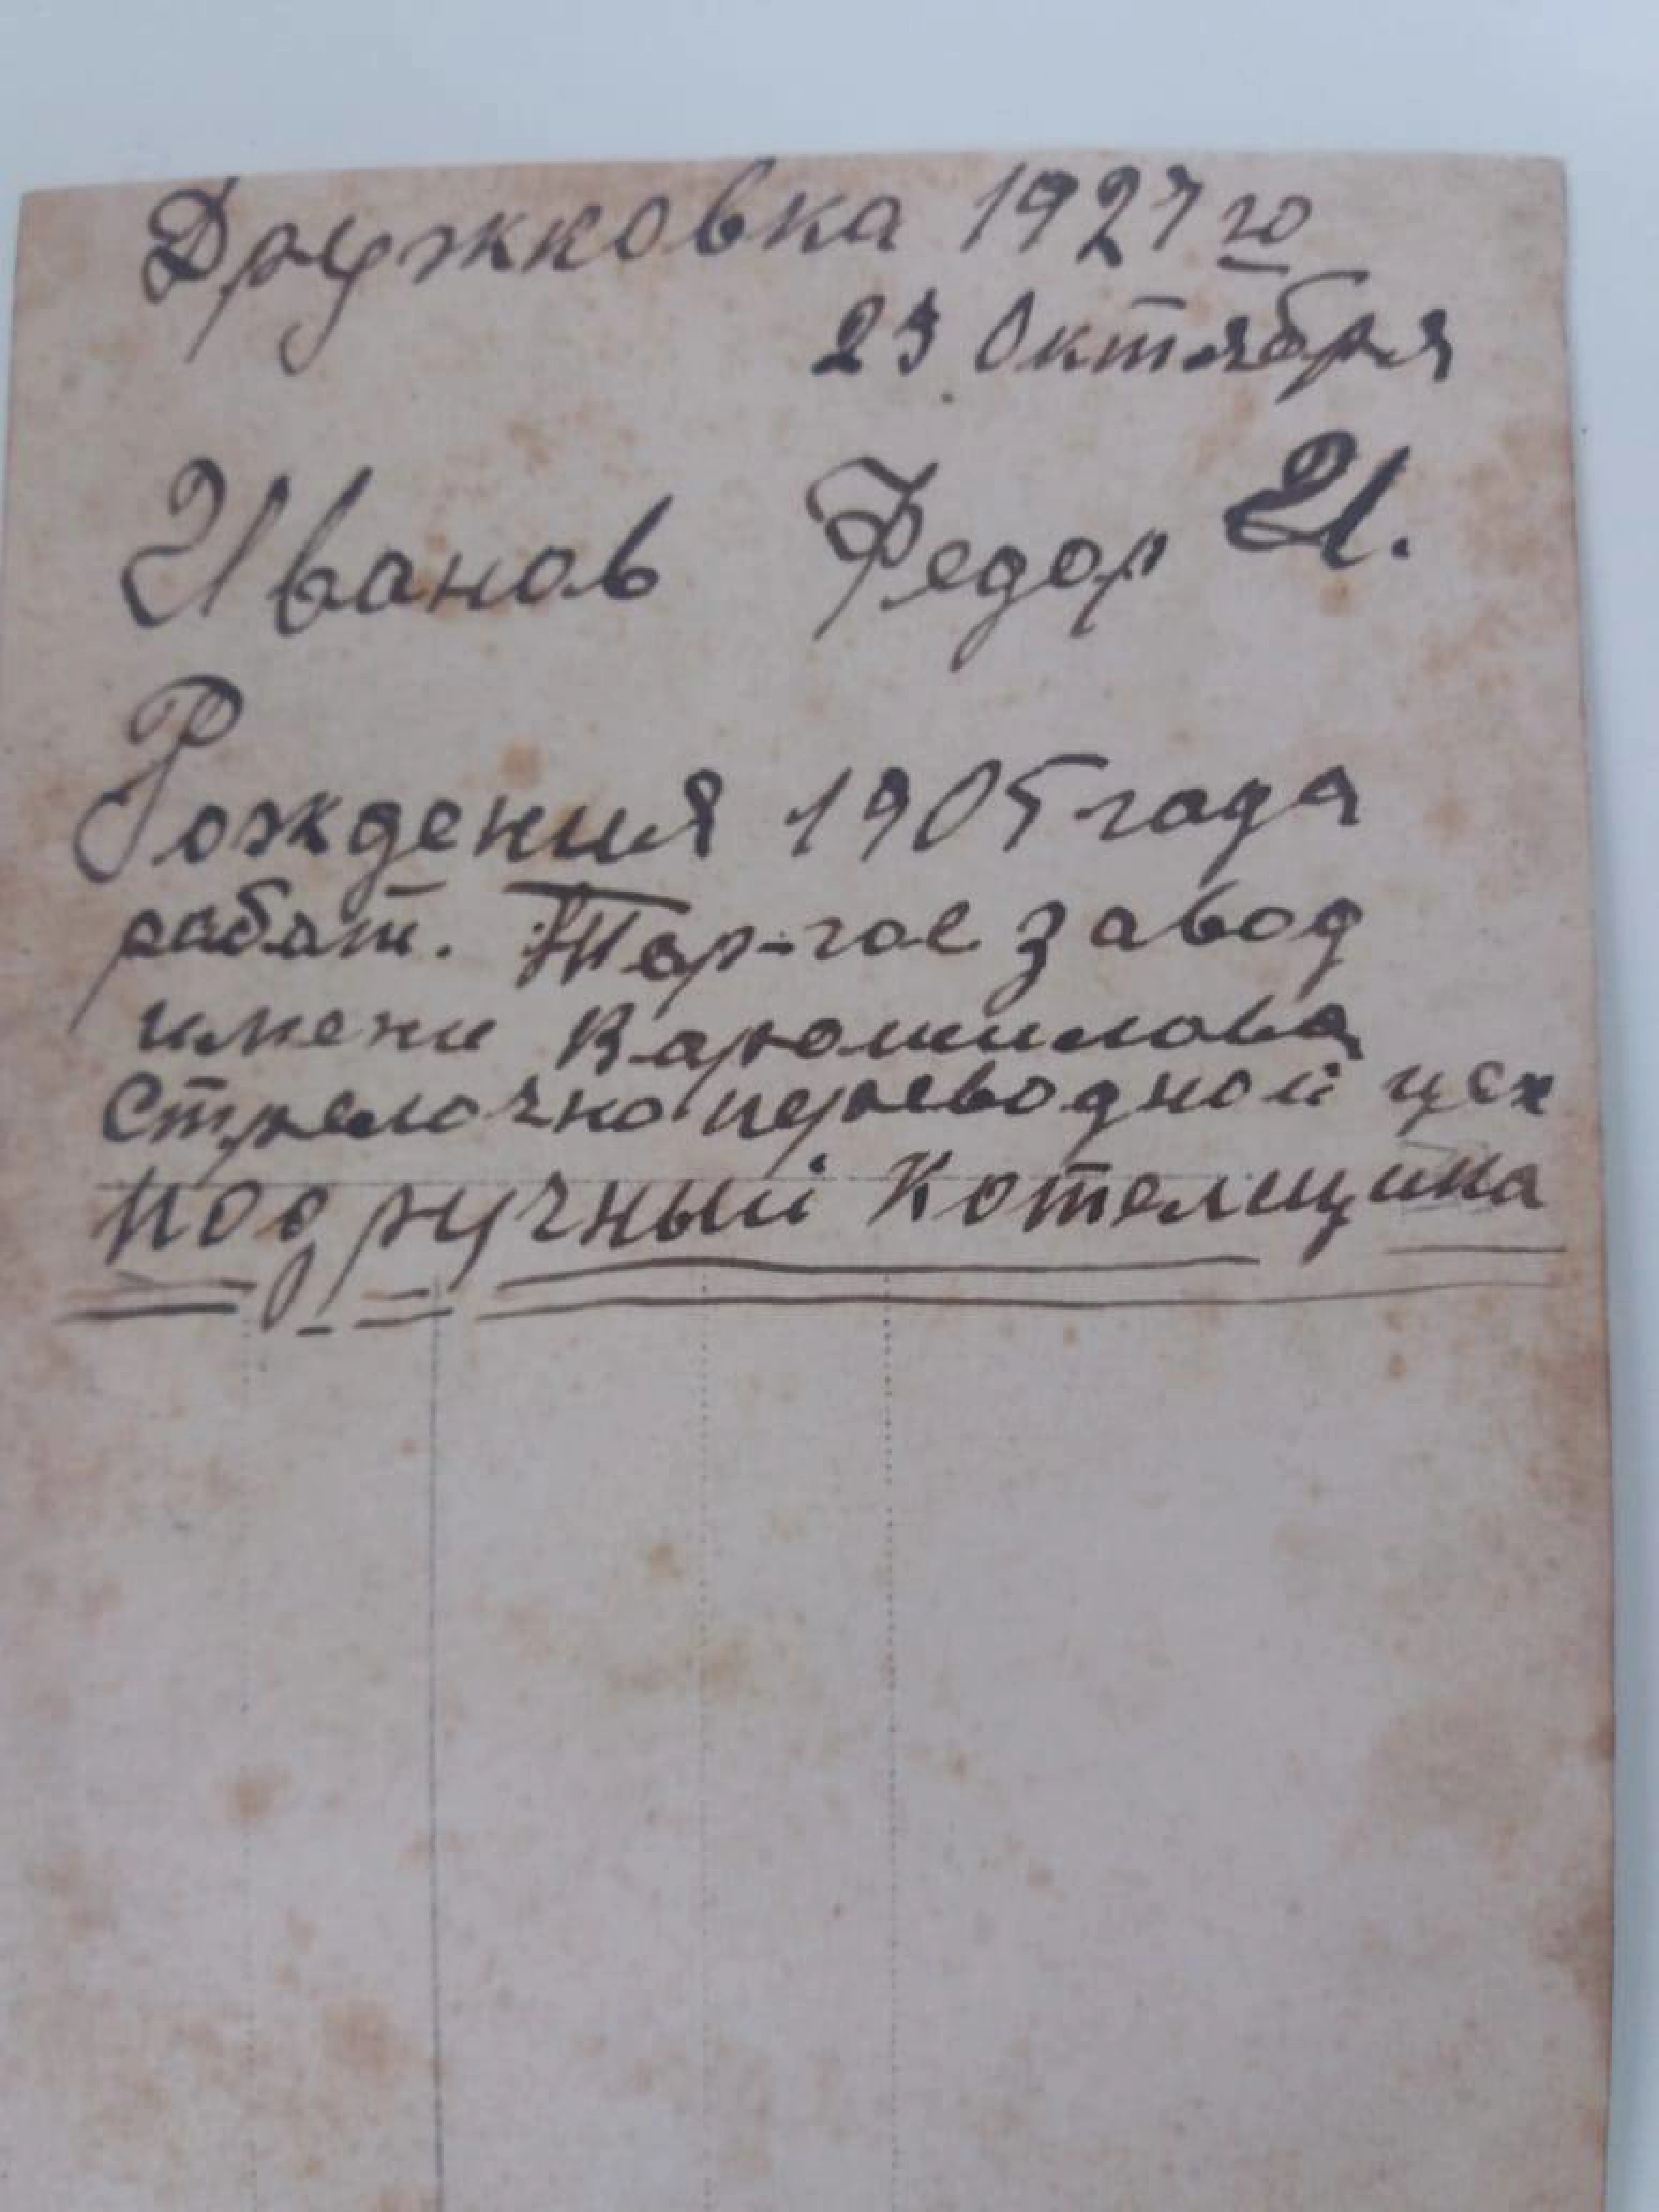 Дружковка 1927 го
23 Октября
Иванов Федор И.
Рождения 1905 года
работ. Тор-гое завод
имени Варошилова
Стрелочно переводной цех
Подручный Котелщика